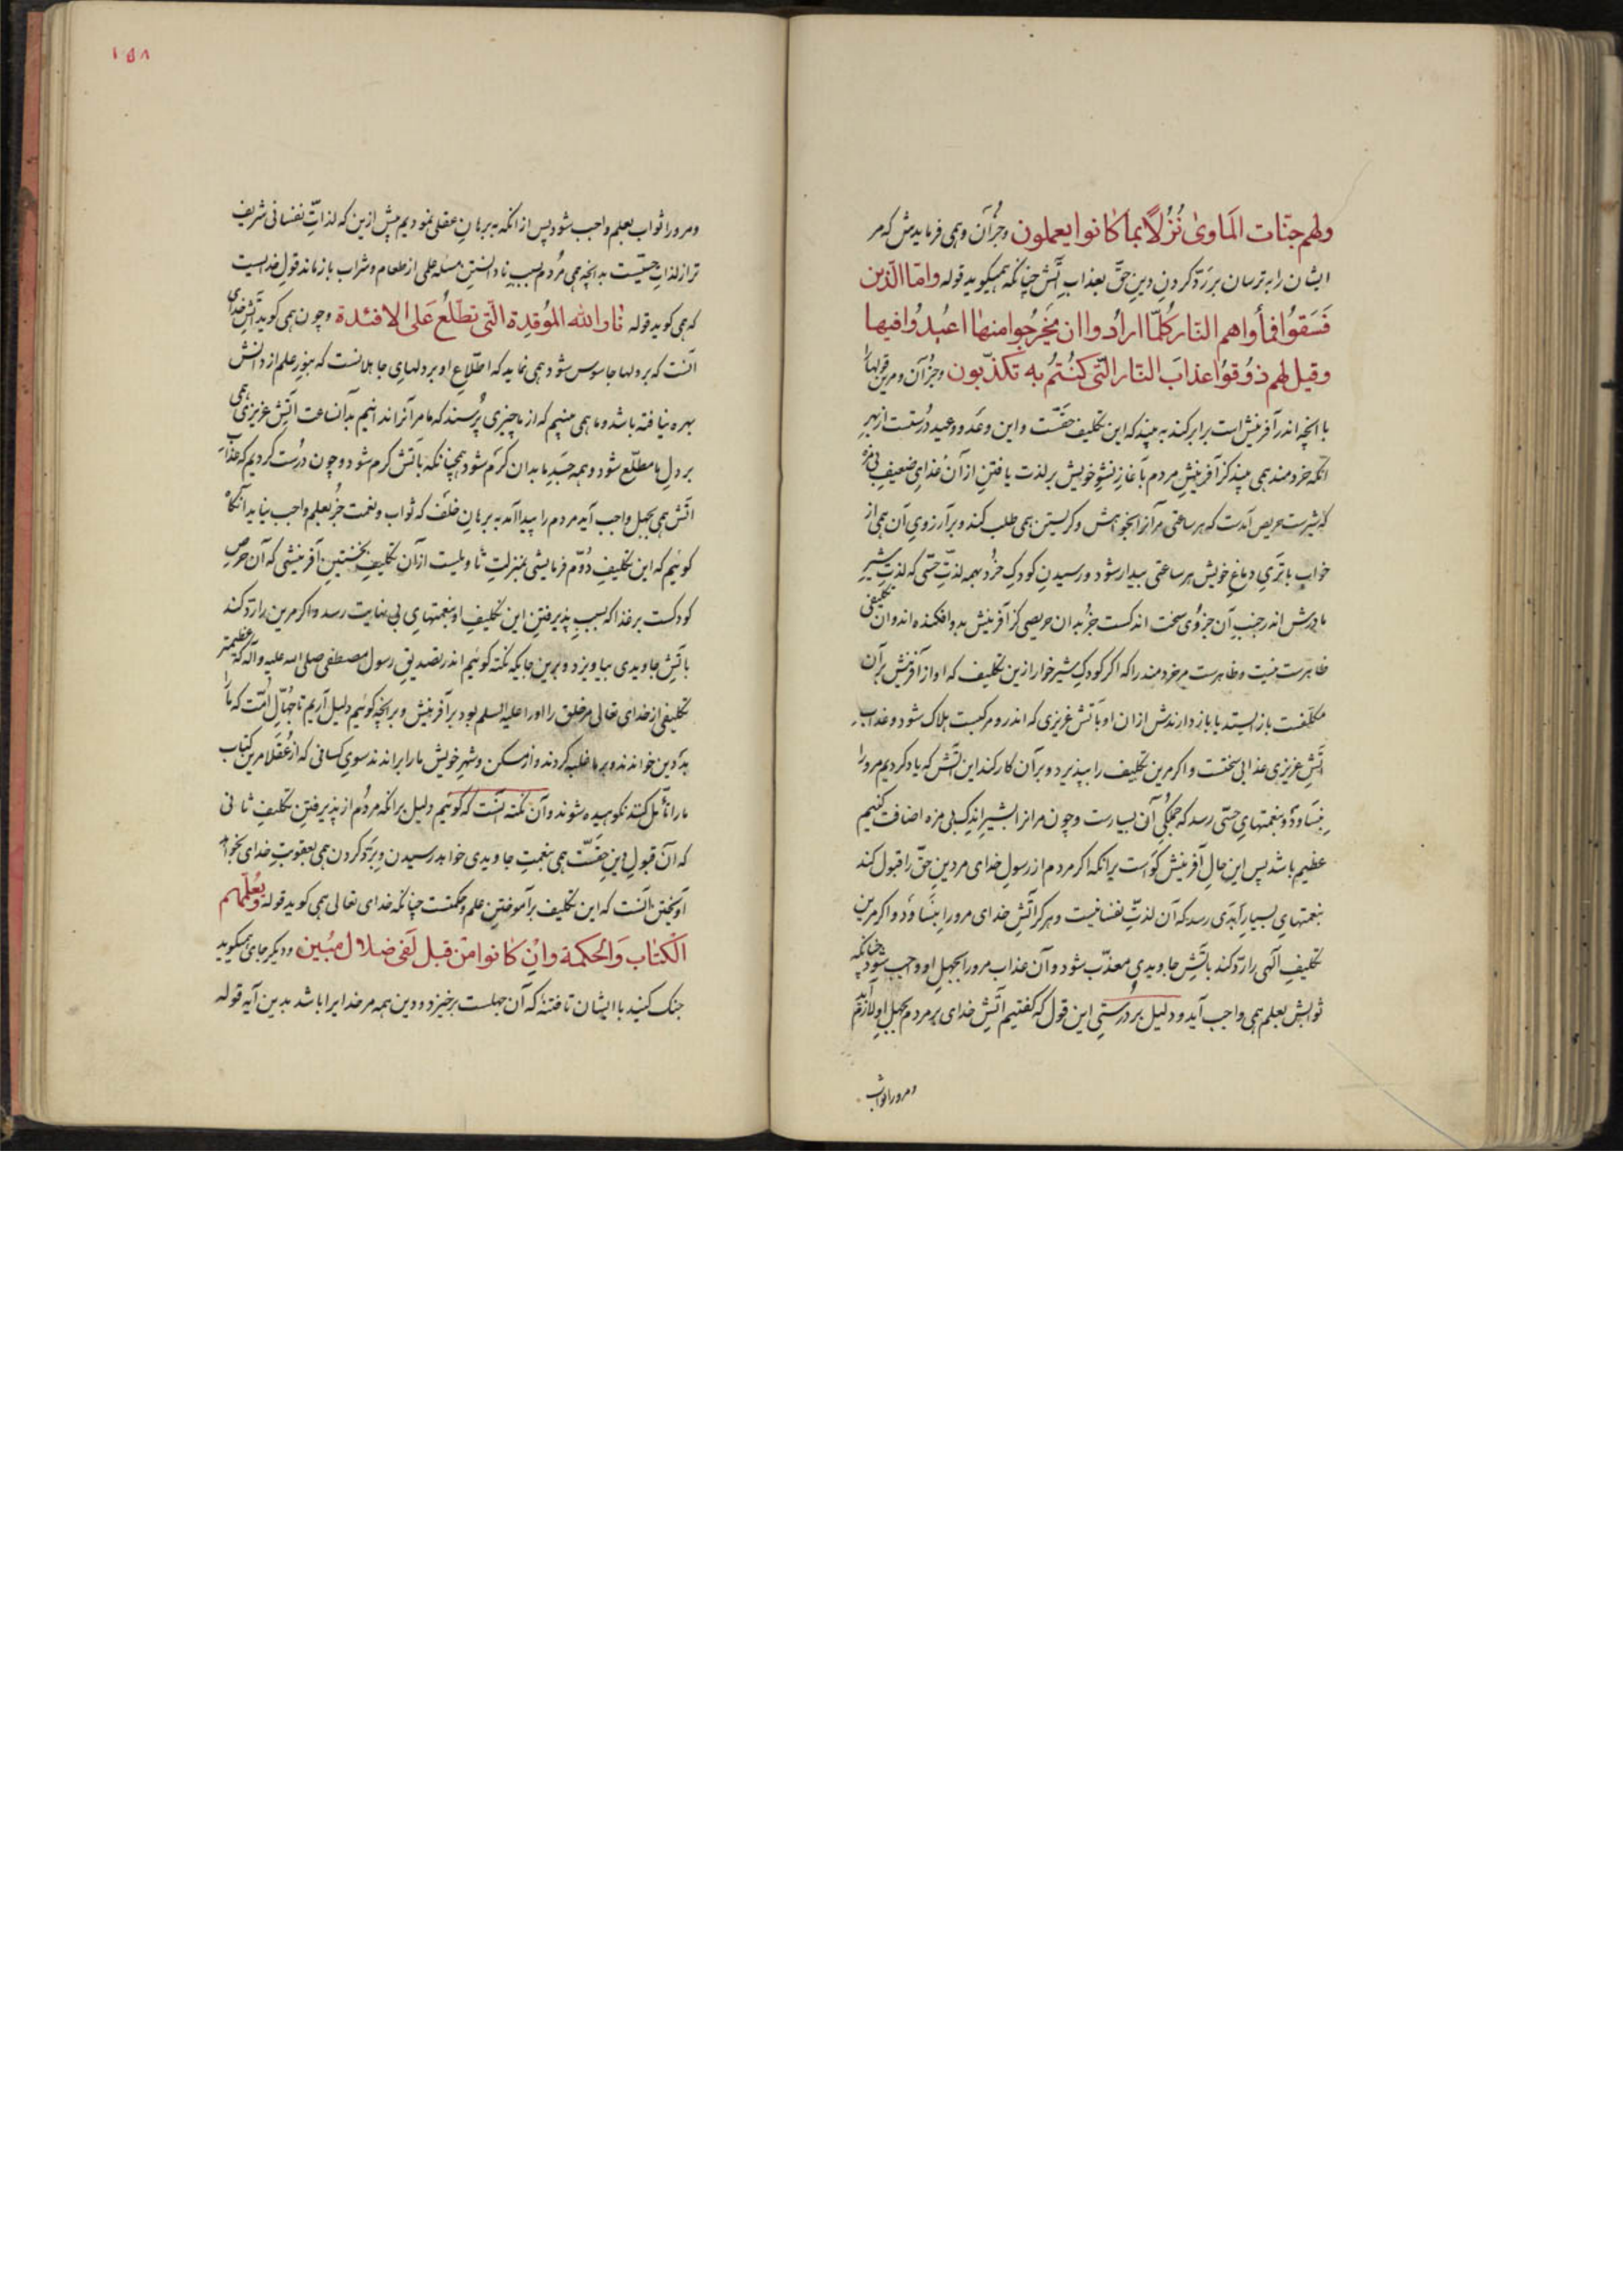 ولهم جنّات المَاویٰ نُزُلًا بما کانوا یعملون وجز آن وهمی فرمایدش که مر
ایشان را بترسان بر رَدّ کردنِ دینِ حقّ بعذابِ آتش چنانکه همیگوید قوله وامّا الّذین
فَسَقوُا فمأواهم النار کُلّما ارادُوا ان یَخرُجوا منهٰا اعیُدُوا فیها
وقیل لهم ذوُقوُا عذابَ النّار الّتی کنُتُم به تکذّبون وجز آن ومرین قولها را
با آنچه اندر آفرینش است برابر کند به بیند که این تکلیف حقّست و این وعده و وعید درُستست از بهر
آنکه خردمند همی بیند کز آفرینشِ مردم بآغازِ نشوِ خویش بر لذت یافتن از آن غذایِ ضعیفِ بی مزه
که شیرست حریص آمدست که هر ساعتی مر آنرا بخواهش وگریستن همی طلب کند و بر آرزویِ آن همی از
خوابِ باتریِ دماغِ خویش هر ساعتی بیدار شود ورسیدنِ کودکِ خرُد بهمه لذتِ حسّی که لذتِ شیرِ
مادرش اندر جنبِ آن جزوی سخت اندکست جز بدان حریصی کز آفرینش بدو افکنده اند وان تکلیفی
ظاهرست نیست وظاهرست مر خردمند را که اگر کودکِ شیرخوار ازین تکلیف که او از آفرینش بر آن
مکلّفست باز ایستد یا باز دارندش ازان او بآتش غریزی که اندرو مرکبست هلاک شود وعذابِ
آتشِ غریزی عذابی سختست واگر مرین تکلیف را بپذیرد وبر آن کار کند این آتش که یاد کردیم مرورا
بنساود وبنعمتهایِ حسّی رسد که جملگیِ آن بسیارست وچون مر انرا بشیرِ اندکِ بی مزه اضافت کنیم
عظیم باشد پس این حالِ آفرینش گواست بر انکه اگر مردم از رسولِ خدای مر دینِ حقّ را قبول کند
بنعمتهایِ بسیارِ ابَدی رسد که آن لذتِ نفسانیست وهرگز آتشِ خدای مرورا بنساود واگر مرین
تکلیفِ الهی را ردّ کند بآتشِ جاویدی معذّب شود وآن عذاب مرورا بجهلِ او واجب شود چنانکه
ثوابش بعلم همی واجب آید ودلیل بر درُستیِ این قول که گفتیم آتشِ خدای بر مردم بجهلِ او لازم آید
ومرورا ثواب
١٥٨
ومرورا ثواب بعلم واجب شود پس از انکه ببرهانِ عقلی نمودیم پیش ازین که لذاتِ نفسانی شریف
تر از لذاتِ حسیّست بدانچه همی مردُم بسببِ نادانستنِ مسئله علمی از طعام وشراب باز ماند قولِ خدایست
که همی گوید قوله نٰار الله الموُقدة الّتی تطّلعُ عَلی الافئدة وچون همی گوید آتش خدای
آنست که بر دلها جاسوس شود همی نماید که اطّلاعِ او بر دلهایِ جاهلانست که بنورِ علم از دانش
بهره نیافته باشد وما همی بینیم که از ما چیزی پرسند که ما مر آنرا ندانیم بدآنساعت آتشِ غریزی همی
بر دلِ ما مطّلع شود وهمه جَسَدِ ما بدان گرم شود همچنانکه بآتش گرم شود وچون درُست کردیم که عذابِ
اتش همی بجهل واجب آید مردم را پیدا آمد به برهانِ خلف که ثواب ونعمت جز بعلم واجب نیاید آنگاه
گوئیم که این تکلیفِ دوُّم فرمایشی بمنزلتِ تاویلست از آن تکلیفِ نخستینِ آفرینشی که آن حرصِ
کودکست بر غذا که بسببِ پذیرفتنِ این تکلیفِ او بنعمتهایِ بی نهایت رسد واگر مرین را ردّ کند
بآتشِ جاویدی بیاویزد وبرین جایگه نکته گوئیم اندر تصدیقِ رسول مصطفی صلی الله علیه وآله که عظیمتر
تکلیفی از خدای تعالی مر خلق را او را علیه السلم بود بر آفرینش وبر انچه گوئیم دلیل آریم تا جُهّالِ امّت که ما را
بدّدین خواندند وبر ما غلبه کردند واز مسکن وشهرِ خویش ما را براندند سویِ کسانی که از عُقَلا مرین کتابِ
ما را تأمّل کنند نکوهیده شوند وآن نکته آنست که گوئیم دلیل بر انکه مردُم از پذیرفتنِ تکلیفِ ثانی
که آن قبولِ دینِ حقسّت همی بنعمتِ جاویدی خواهد رسیدن وبردّ کردن همی بعقوبتِ خدای بخواهد
آویختن آنست که این تکلیف بر آموختنِ علم وحکمتست چنانکه خدای تعالی همی گوید قوله وَیُعلّمهم
الکتٰاب وَالحکمة وَان کٰانوا من قبل لَفی ضلال مبُین ودیگر جای همیگوید
جنگ کنید با ایشان تا فتنه که آن جهلست برخیزد ودین همه مر خدایرا باشد بدین آیه قوله